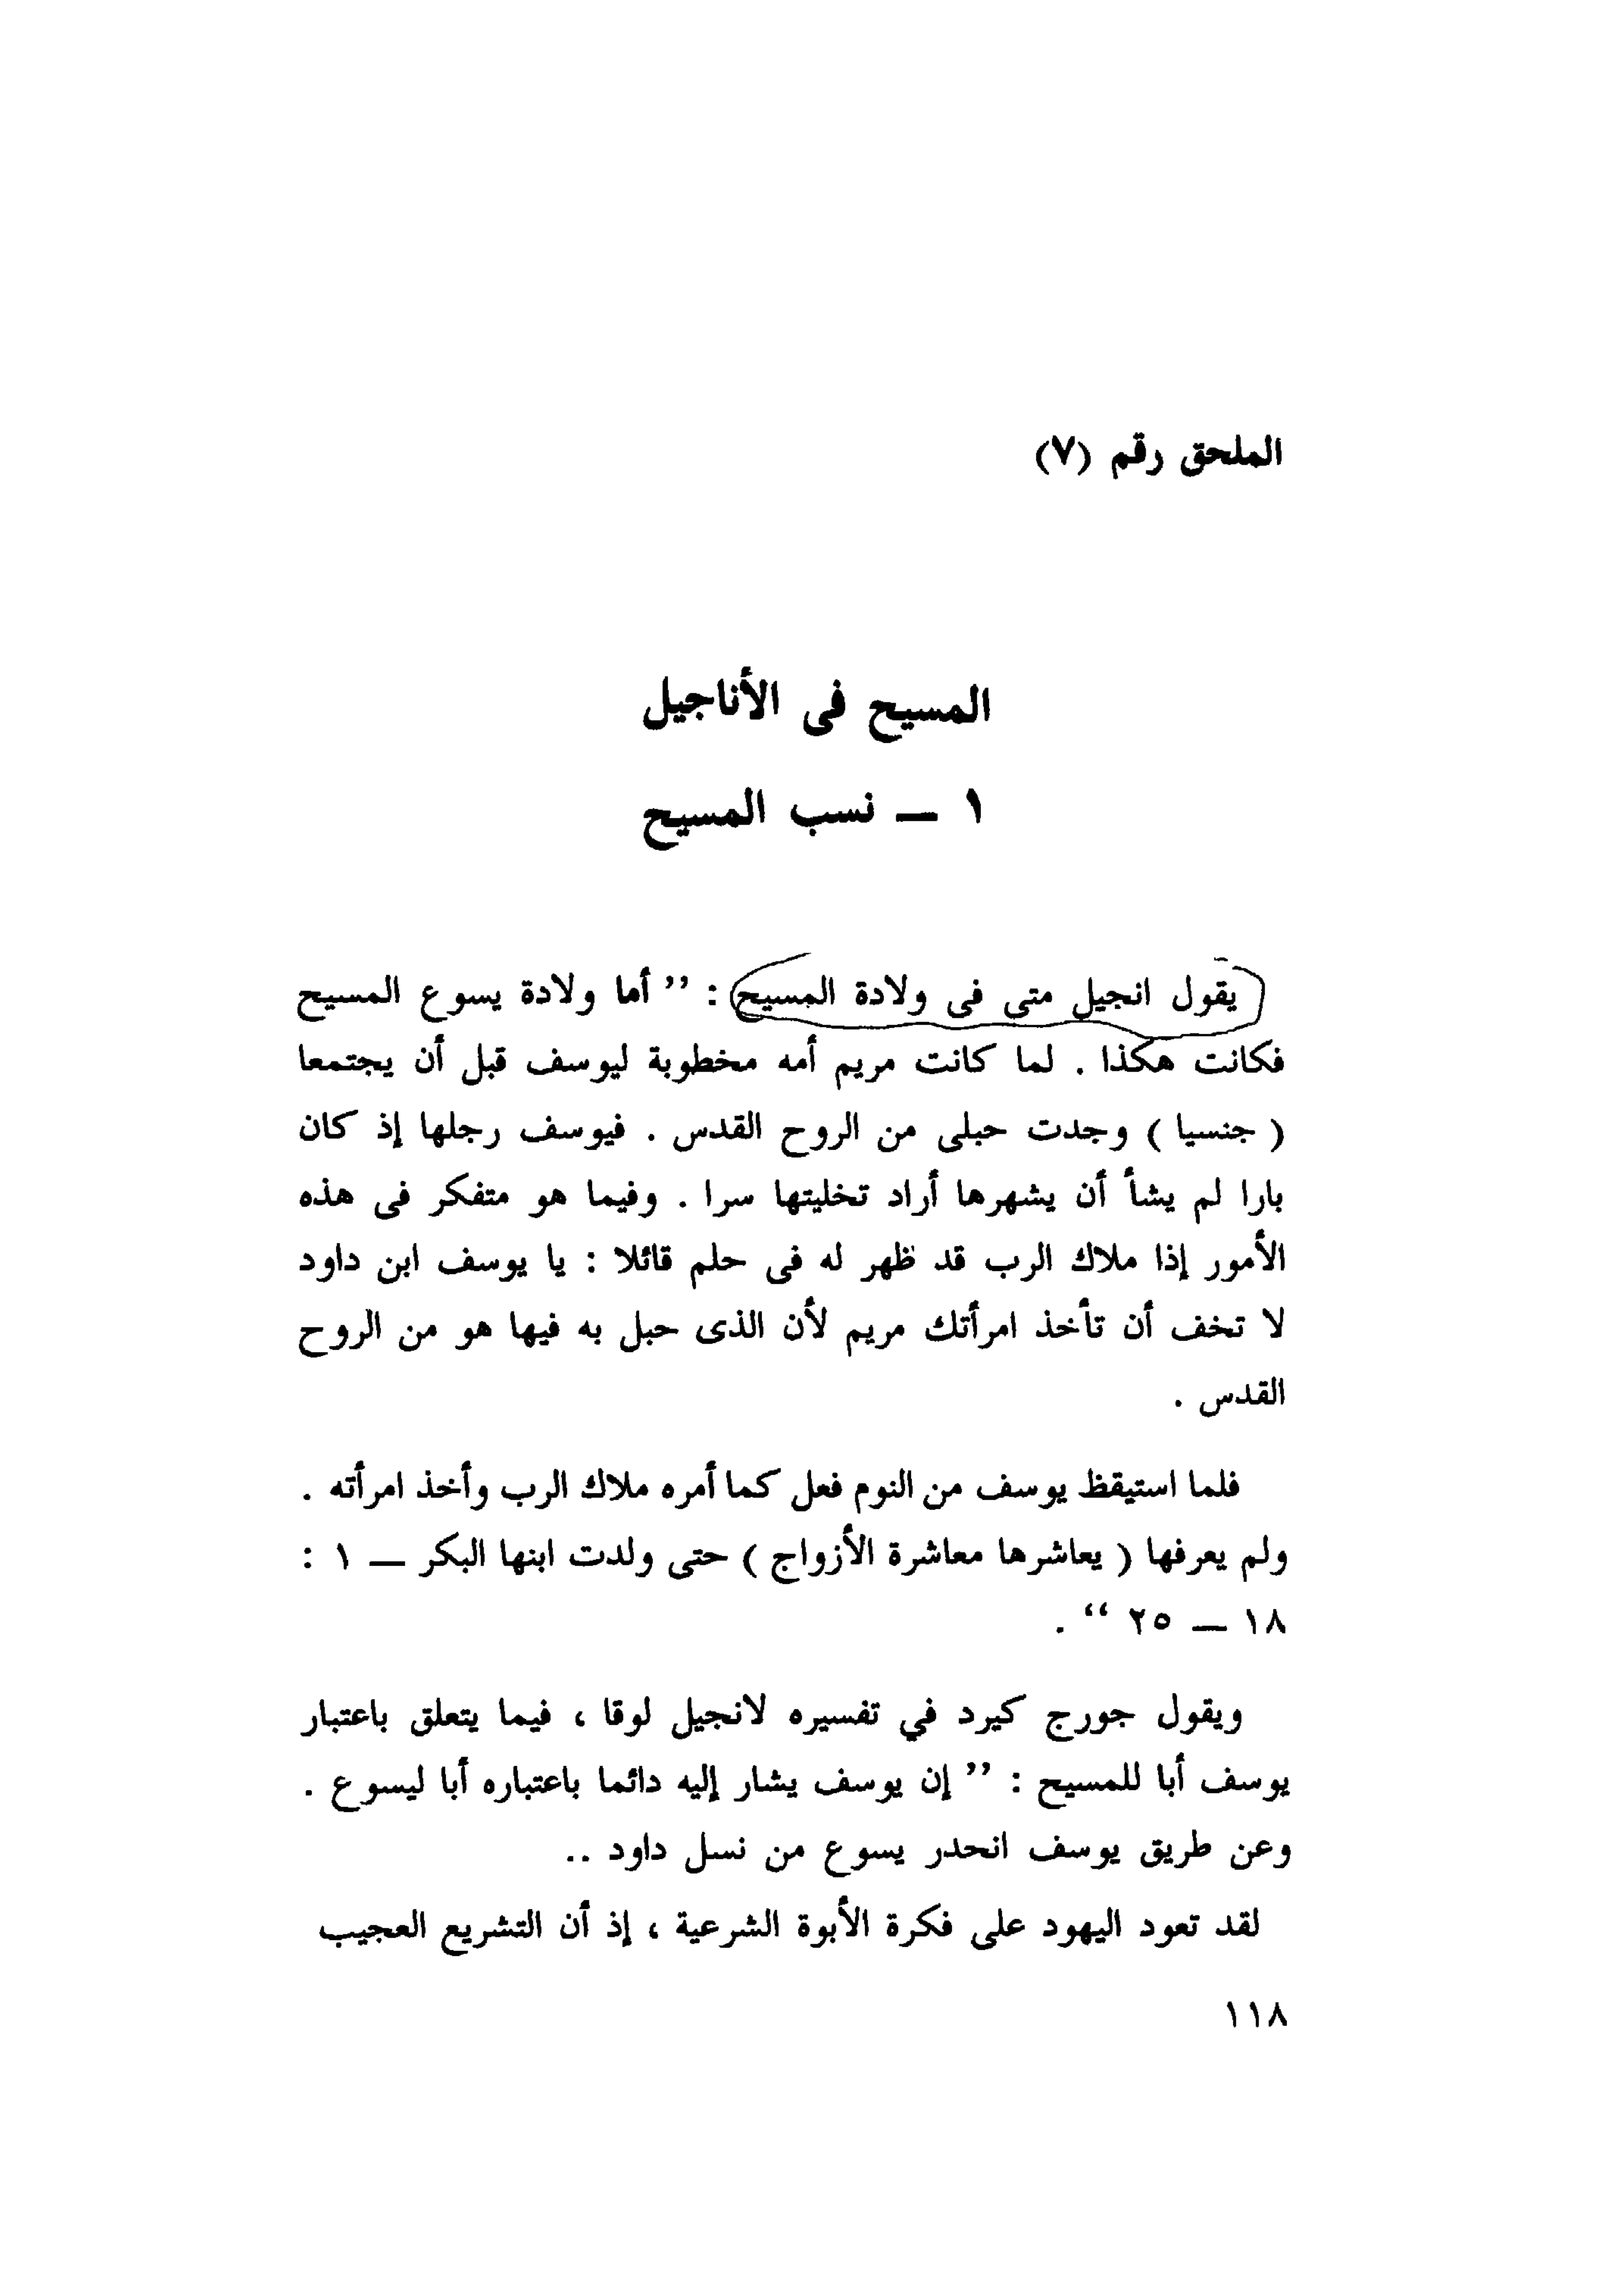 الملحق رقم (٧)
المسيح فى الأناجيل
١ — نسب المسيح
يقول انجيل متى فى ولادة المسيح : ’’ أما ولادة يسوع المسيح
فكانت هكذا . لما كانت مريم أمه مخطوبة ليوسف قبل أن يجتمعا
( جنسيا ) وجدت حبلى من الروح القدس . فيوسف رجلها إذ كان
بارا لم يشأ أن يشهرها أراد تخليتها سرا . وفيما هو متفكر فى هذه
الأمور إذا ملاك الرب قد ظهر له فى حلم قائلا : يا يوسف ابن داود
لا تخف أن تأخذ امرأتك مريم لأن الذى حبل به فيها هو من الروح
القدس .
فلما استيقظ يوسف من النوم فعل كما أمره ملاك الرب وأخذ امرأته .
ولم يعرفها ( يعاشرها معاشرة الأزواج ) حتى ولدت ابنها البكر — ١ :
١٨ — ٢٥ ‘‘ .
ويقول جورج كيرد في تفسيره لانجيل لوقا ، فيما يتعلق باعتبار
يوسف أبا للمسيح : ’’ إن يوسف يشار إليه دائما باعتباره أبا ليسوع .
وعن طريق يوسف انحدر يسوع من نسل داود ..
لقد تعود اليهود على فكرة الأبوة الشرعية ، إذ أن التشريع العجيب
١١٨